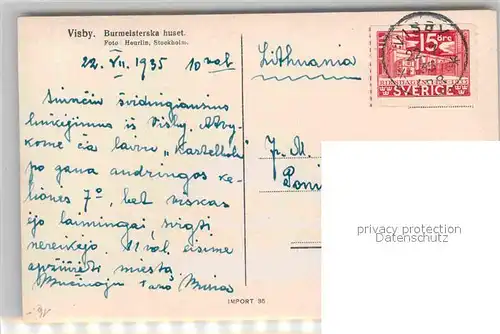 Visby. Burmeisterska huset.
Foto Heurlin, Stockholm.
22. VII. 1935 10 val.
Siunčiu širdingiausius
linkėjimus iš Visby. Atvy-
kome čia laivu „Kastelholm
po gana audringos ke-
lionės 7º, bet viskas
ėjo laimingai, sirgti
nereikėjo. 11 val. eisime
apžiūrėti miestą.
Bučiuoju Tavo
Lithuania
15 öre
RIKSDAGEN 1435 1935
SVERIGE
P. M.
Pon
privacy protection
Datenschutz
IMPORT 35